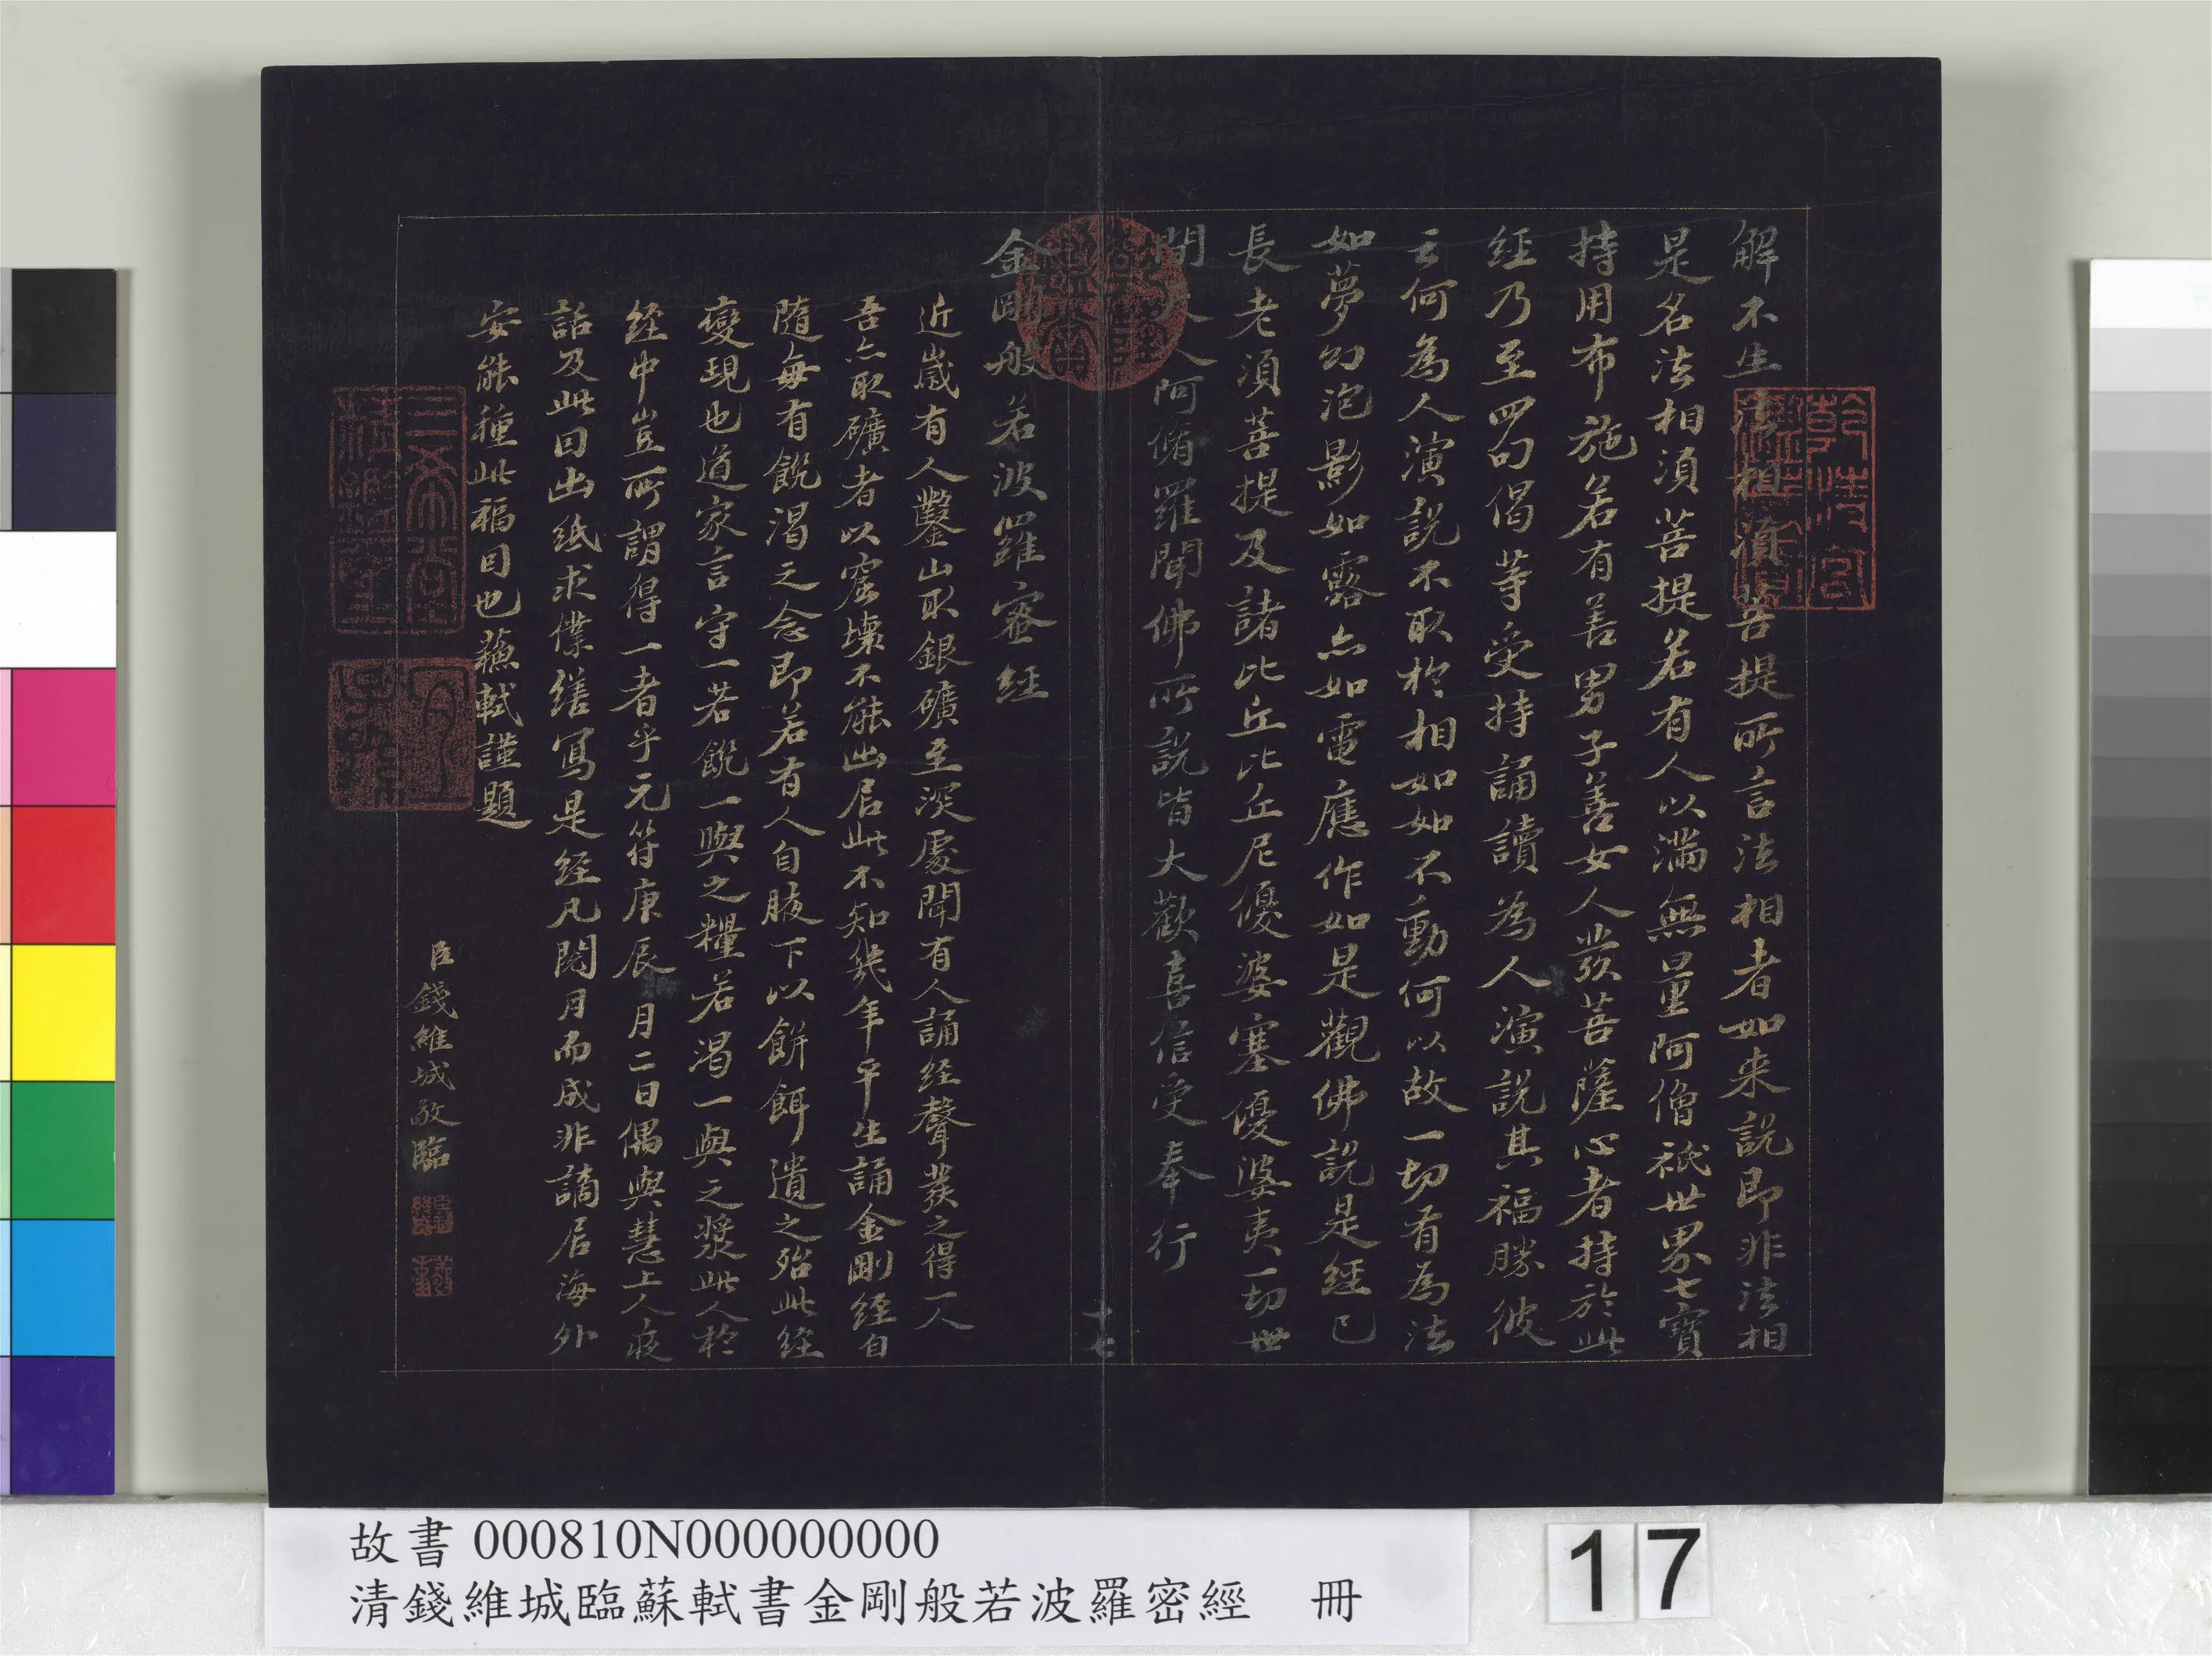 解不生法相須菩提所言法相者如来説即非法相
是名法相須菩提若有人以滿無量阿僧祇世界七寶
持用布施若有善男子善女人發菩薩心者持於此
經乃至四句偈等受持誦讀為人演說其福勝彼
云何為人演說不取於相如如不動何以故一切有為法
如夢幻泡影如露亦如電應作如是觀佛說是經已
長老須菩提及諸比丘比丘尼優婆塞優婆夷一切世
間天人阿脩羅聞佛所說皆大歡喜信受奉行
十七
金剛般若波羅密經
近歲有人鑿山取銀礦至深處聞有人誦経聲發之得一人
吾亦取礦者以窟壞不能出居此不知幾年平生誦金剛経自
隨每有饑渴之念即若有人自腋下以餅餌遺之殆此経
變現也道家言守一若饑一與之糧若渴一與之漿此人於
経中豈所謂得一者乎元符庚辰 月二日偶與慧上人夜
話及此因出紙求僕繕寫是経凡閱月而成非謫居海外
安能種此福因也蘇軾謹題
臣錢維城敬臨
乾清宮鑒藏寶
三希堂精鑑璽
宜子孫
故書 000810N000000000
清錢維城臨蘇軾書金剛般若波羅密經 冊
17